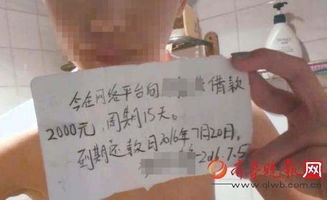 今在网络平台向 借款
2000元，周期15天。
到期还款日2016年7月20日。
2016.7.5
齐鲁晚报网
www.qlwb.com.cn